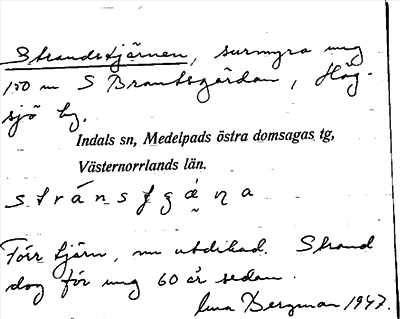 Strandstjärnen, surmyra ung
150 m S Brantsgårdan, Hög-
sjö by.
Indals sn, Medelpads östra domsagas tg,
Västernorrlands län.
Förr tjärn, nu utdikad. Strand
dog för ung 60 år sedan.
Bergman 1947.